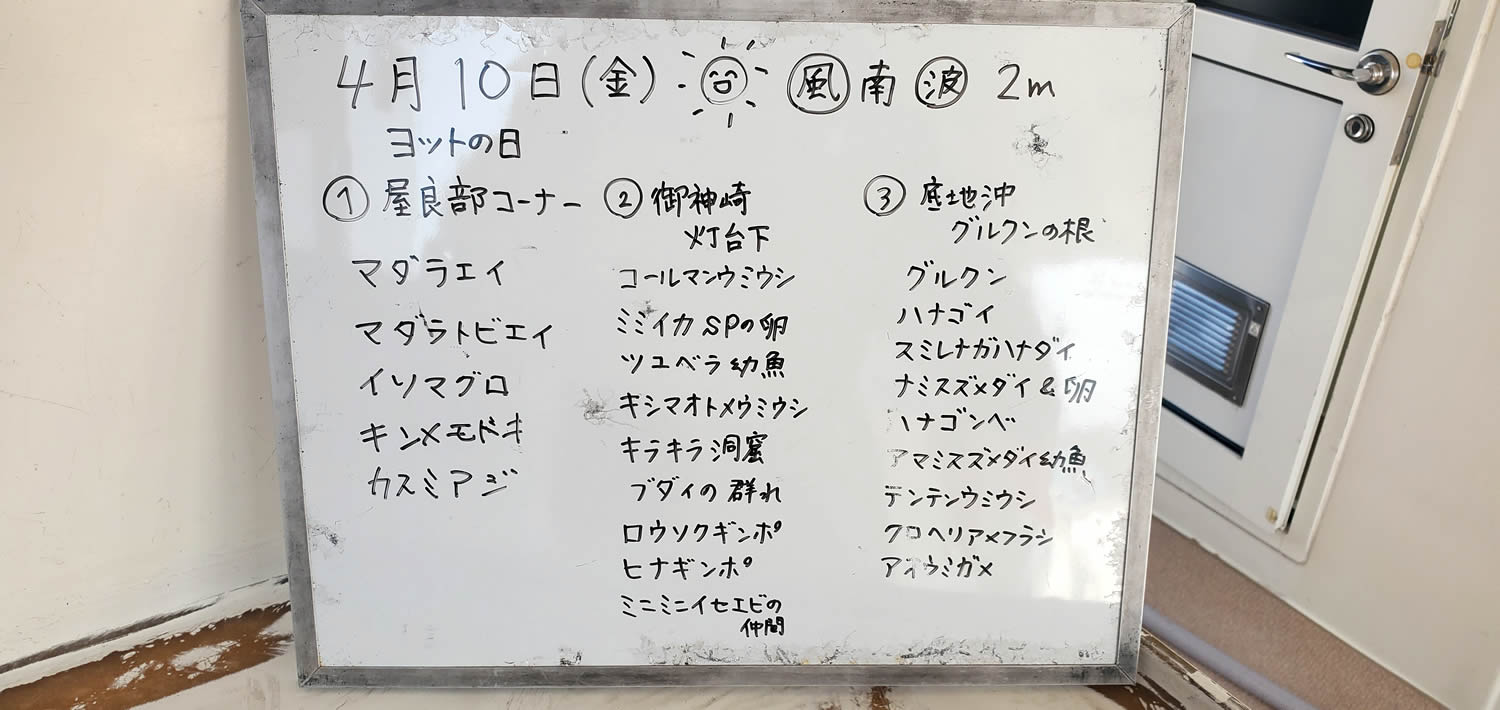 4月10日(金) 風 南 波 2m
ヨットの日
① 屋良部コーナー
マダラエイ
マダラトビエイ
イソマグロ
キンメモドキ
カスミアジ
② 御神崎
灯台下
コールマンウミウシ
ミミイカSPの卵
ツユベラ幼魚
キシマオトメウミウシ
キラキラ洞窟
ブダイの群れ
ロウソクギンポ
ヒナギンポ
ミニミニイセエビの
仲間
③ 底地沖
グルクンの根
グルクン
ハナゴイ
スミレナガハナダイ
ナミスズメダイ&卵
ハナゴンベ
アマミスズメダイ幼魚
テンテンウミウシ
クロヘリアメフラシ
アオウミガメ